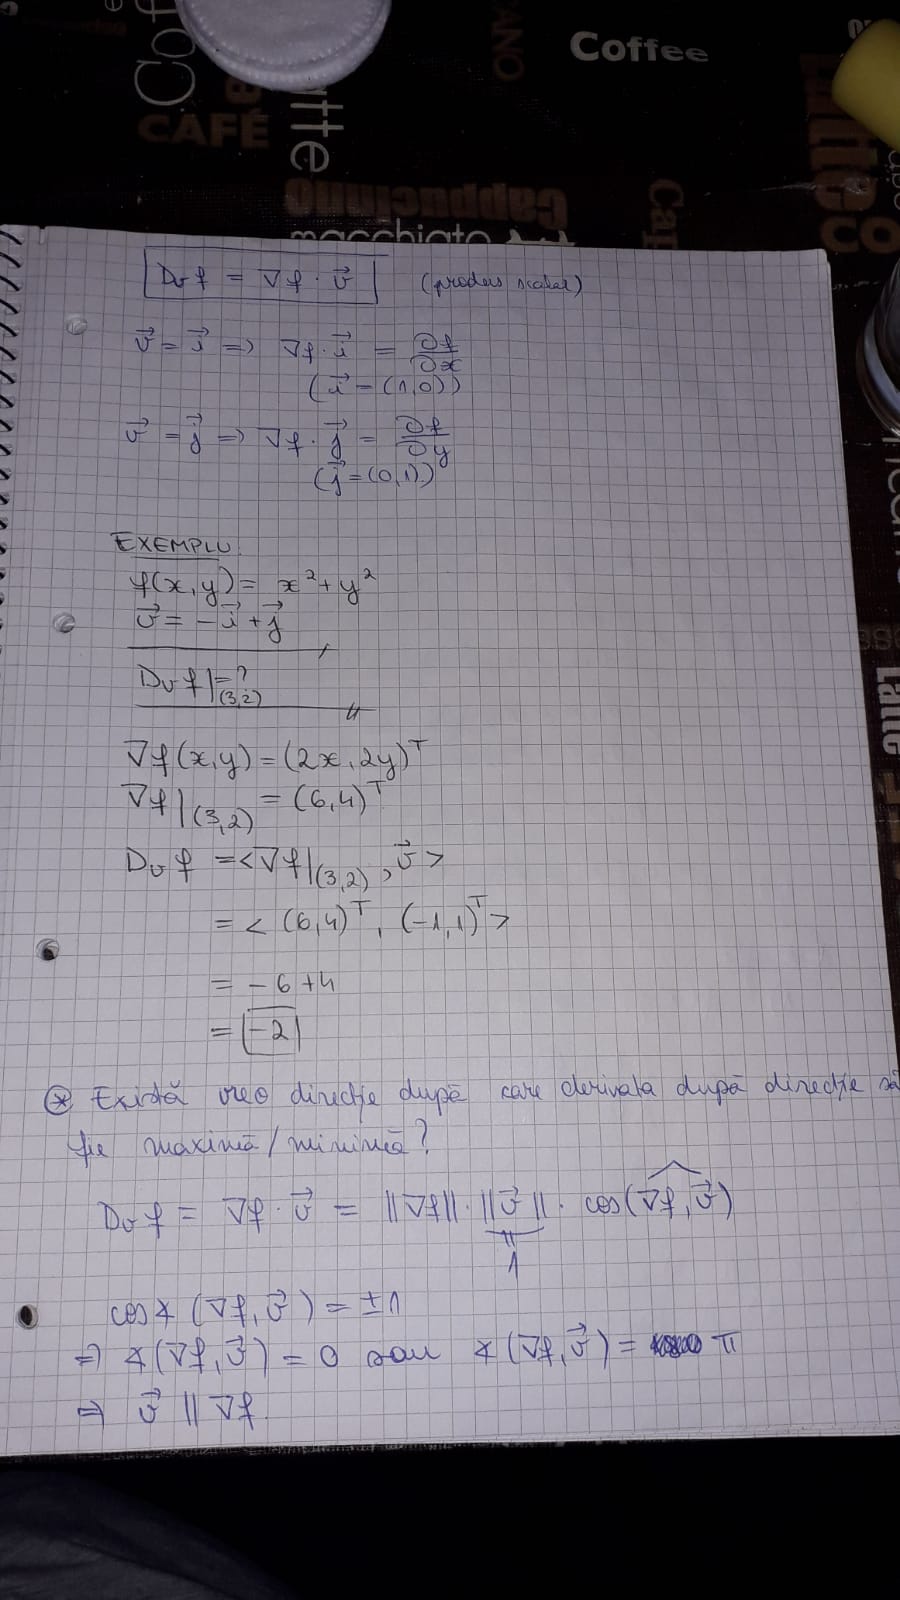 Coffee
CAFÉ
Cappuccino
macchiato
Latte
D_v f = ∇f · v⃗ (produs scalar)
v⃗ = i⃗ => ∇f · i⃗ = ∂f/∂x
(i⃗ = (1,0))
v⃗ = j⃗ => ∇f · j⃗ = ∂f/∂y
(j⃗ = (0,1))
EXEMPLU
f(x,y) = x² + y²
v⃗ = -i⃗ + j⃗
D_v f|_(3,2) = ?
∇f(x,y) = (2x, 2y)^T
∇f|_(3,2) = (6,4)^T
D_v f = <∇f|_(3,2), v⃗>
= < (6,4)^T, (-1,1)^T >
= -6 + 4
= -2
⊛ Există vreo direcție după care derivata după direcție să
fie maximă/minimă?
D_v f = ∇f · v⃗ = ||∇f|| · ||v⃗|| · cos(∇f, v⃗)
=
1
cos∢(∇f, v⃗) = ±1
=> ∢(∇f, v⃗) = 0 sau ∢(∇f, v⃗) = π
=> v⃗ || ∇f.